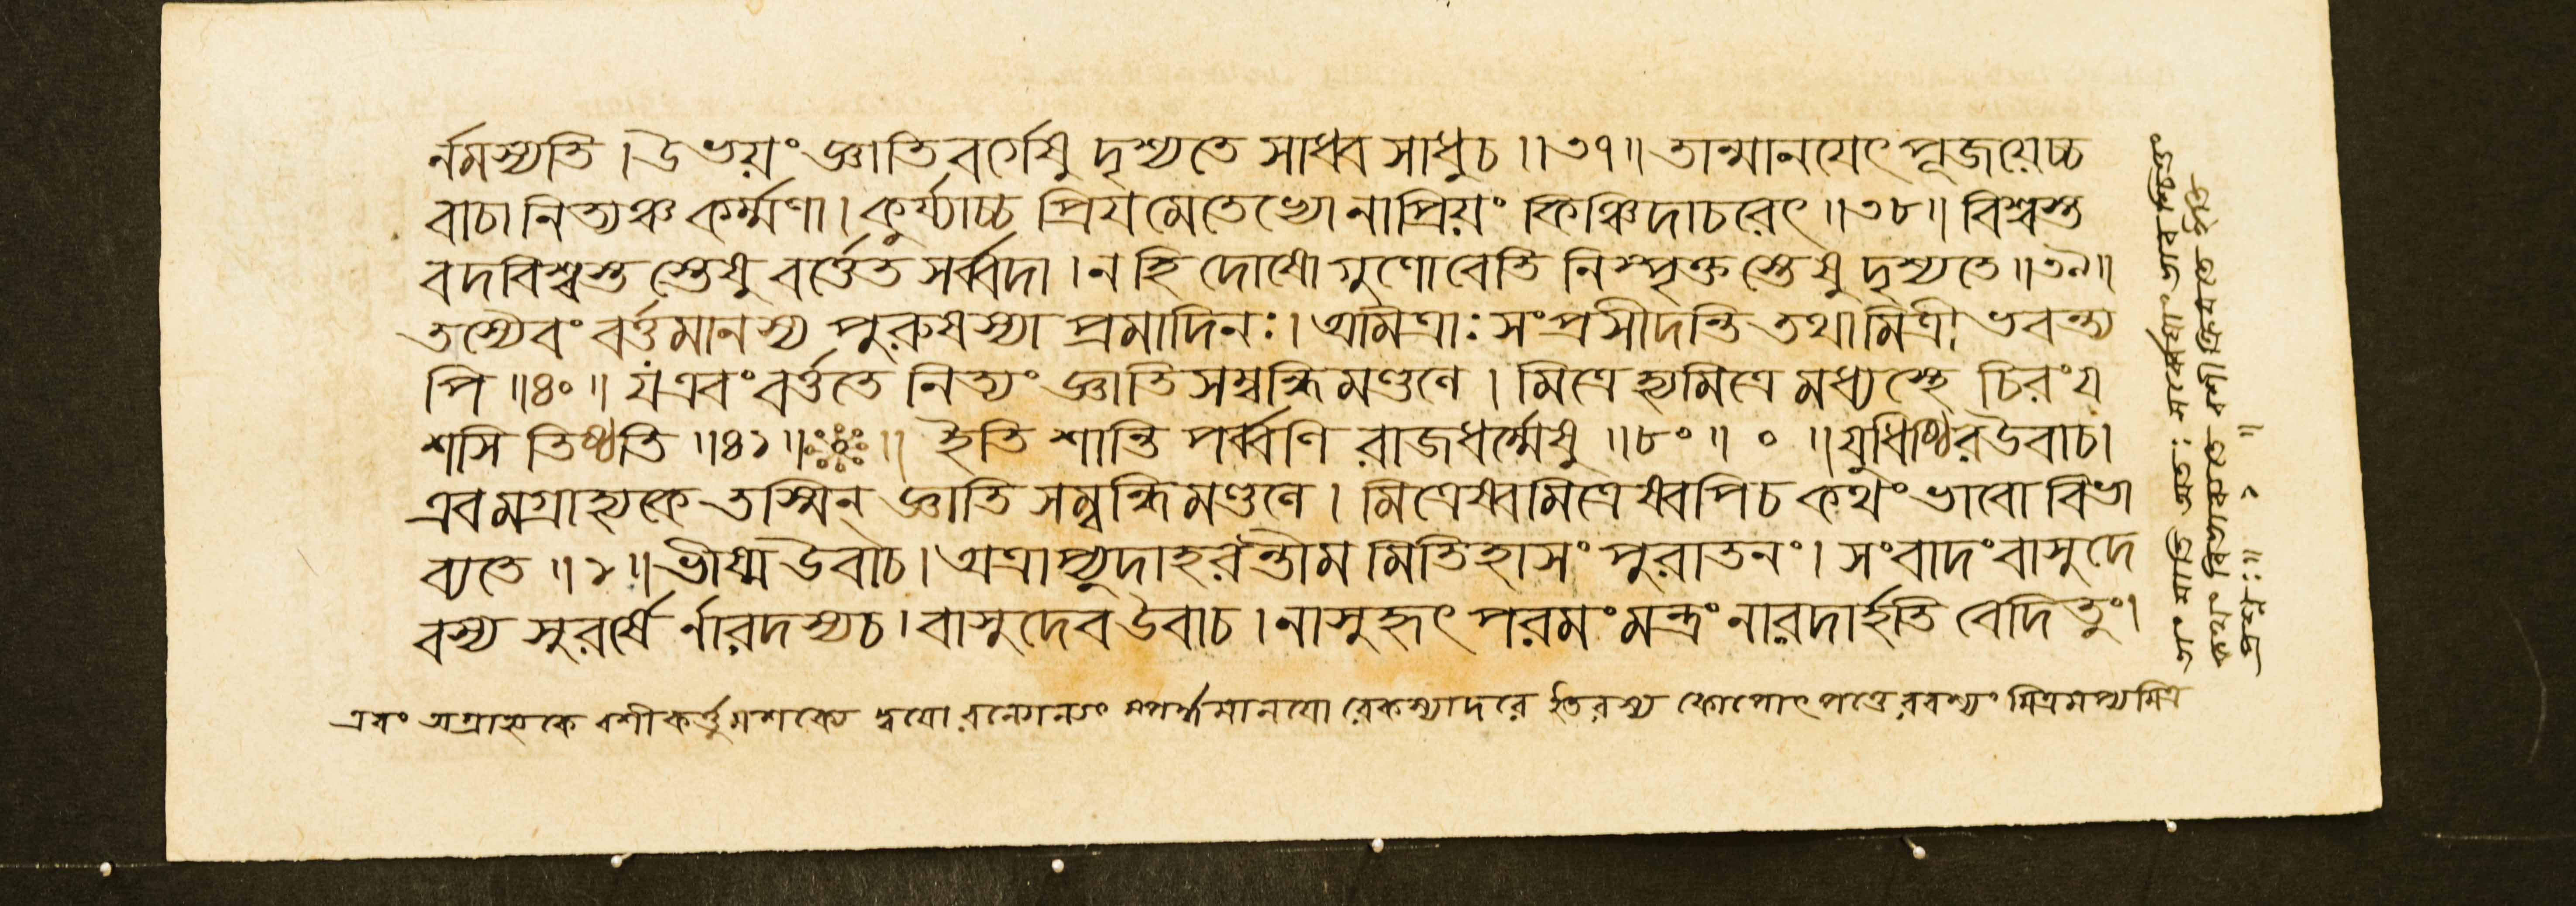 র্নমস্যতি । উভয়ং জ্ঞাতিবর্গেষু দৃশ্যতে সাধ্বসাধুচ ॥ ৩৭ ॥ তান্মানযেৎ পূজয়েচ্চ
বাচা নিত্যঞ্চ কর্ম্মণা । কুর্য্যাচ্চ প্রিযমেতেভ্যো নাপ্রিয়ং কিঞ্চিদাচরেৎ ॥ ৩৮ ॥ বিশ্বস্ত
বদবিশ্বস্ত স্তেষু বর্ত্তেত সর্ব্বদা । ন হি দোষো গুণোবেতি নিস্পৃক্ত স্তেষু দৃশ্যতে ॥ ৩৯ ॥
তস্যৈবং বর্ত্তমানস্য পুরুষস্যা প্রমাদিনঃ । অমিত্রাঃ সংপ্রসীদন্তি তথামিত্রী ভবন্ত্য
পি ॥ ৪০ ॥ য এবং বর্ত্ততে নিত্যং জ্ঞাতিসম্বন্ধিমণ্ডলে । মিত্রে হ্যমিত্রে মধ্যস্থে চিরং য
শসি তিষ্ঠতি ॥ ৪১ ॥ ॥ ইতি শান্তি পর্ব্বণি রাজধর্ম্মেষু ॥ ৮০ ॥ ০ ॥ যুধিষ্ঠিরউবাচ ।
এবমগ্রাহ্যকে তস্মিন্ জ্ঞাতিসম্বন্ধিমণ্ডলে । মিত্রেষ্বমিত্রেষ্বপিচ কথং ভাবো বিভা
ব্যতে ॥ ১ ॥ ভীষ্ম উবাচ । অত্রাপ্যুদাহরন্তীম মিতিহাসং পুরাতনং । সংবাদং বাসুদে
বস্য সুরর্ষে র্নারদস্যচ । বাসুদেব উবাচ । নাসুহৃৎ পরমং মন্ত্রং নারদার্হতি বেদিতুং ।
এবং অগ্রাহ্যকে বশীকর্ত্তুমশক্যে দ্বযো স্পর্দ্ধমানযো রেকস্যাদরে ইতরস্য কোপোৎপত্তে রবশ্যং মিত্রমপ্যমিত্র
তাং যাতি অতঃ সর্ব্বেষাং ভাব শ্চিত্তং
কথং বিভাব্যতে বশীক্রিযতে
প্রশ্নঃ ॥ ১ ॥